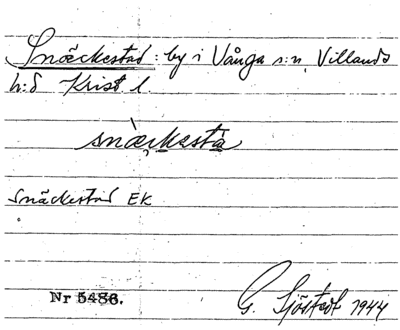 Snäckestad: by i Vånga s:n, Villands
h:d Krist l.
snæckestà
Snäckestad EK
Nr 5486.
G. Sjöstedt 1944